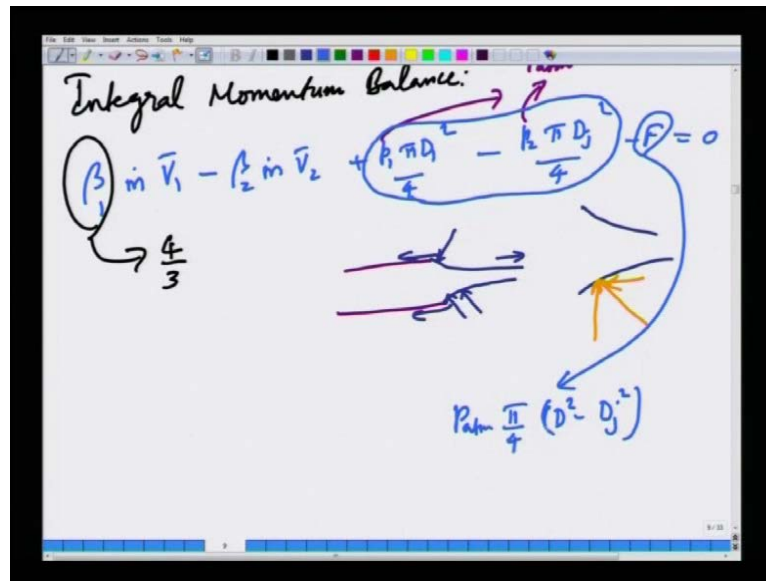 File Edit View Insert Actions Tools Help
Integral Momentum Balance:
Patm
β₁ ṁ V̄₁ - β₂ ṁ V̄₂ + P₁ πD₁²/4 - P₂ πDj²/4 - F = 0
4/3
Patm π/4 (D² - Dj²)
9